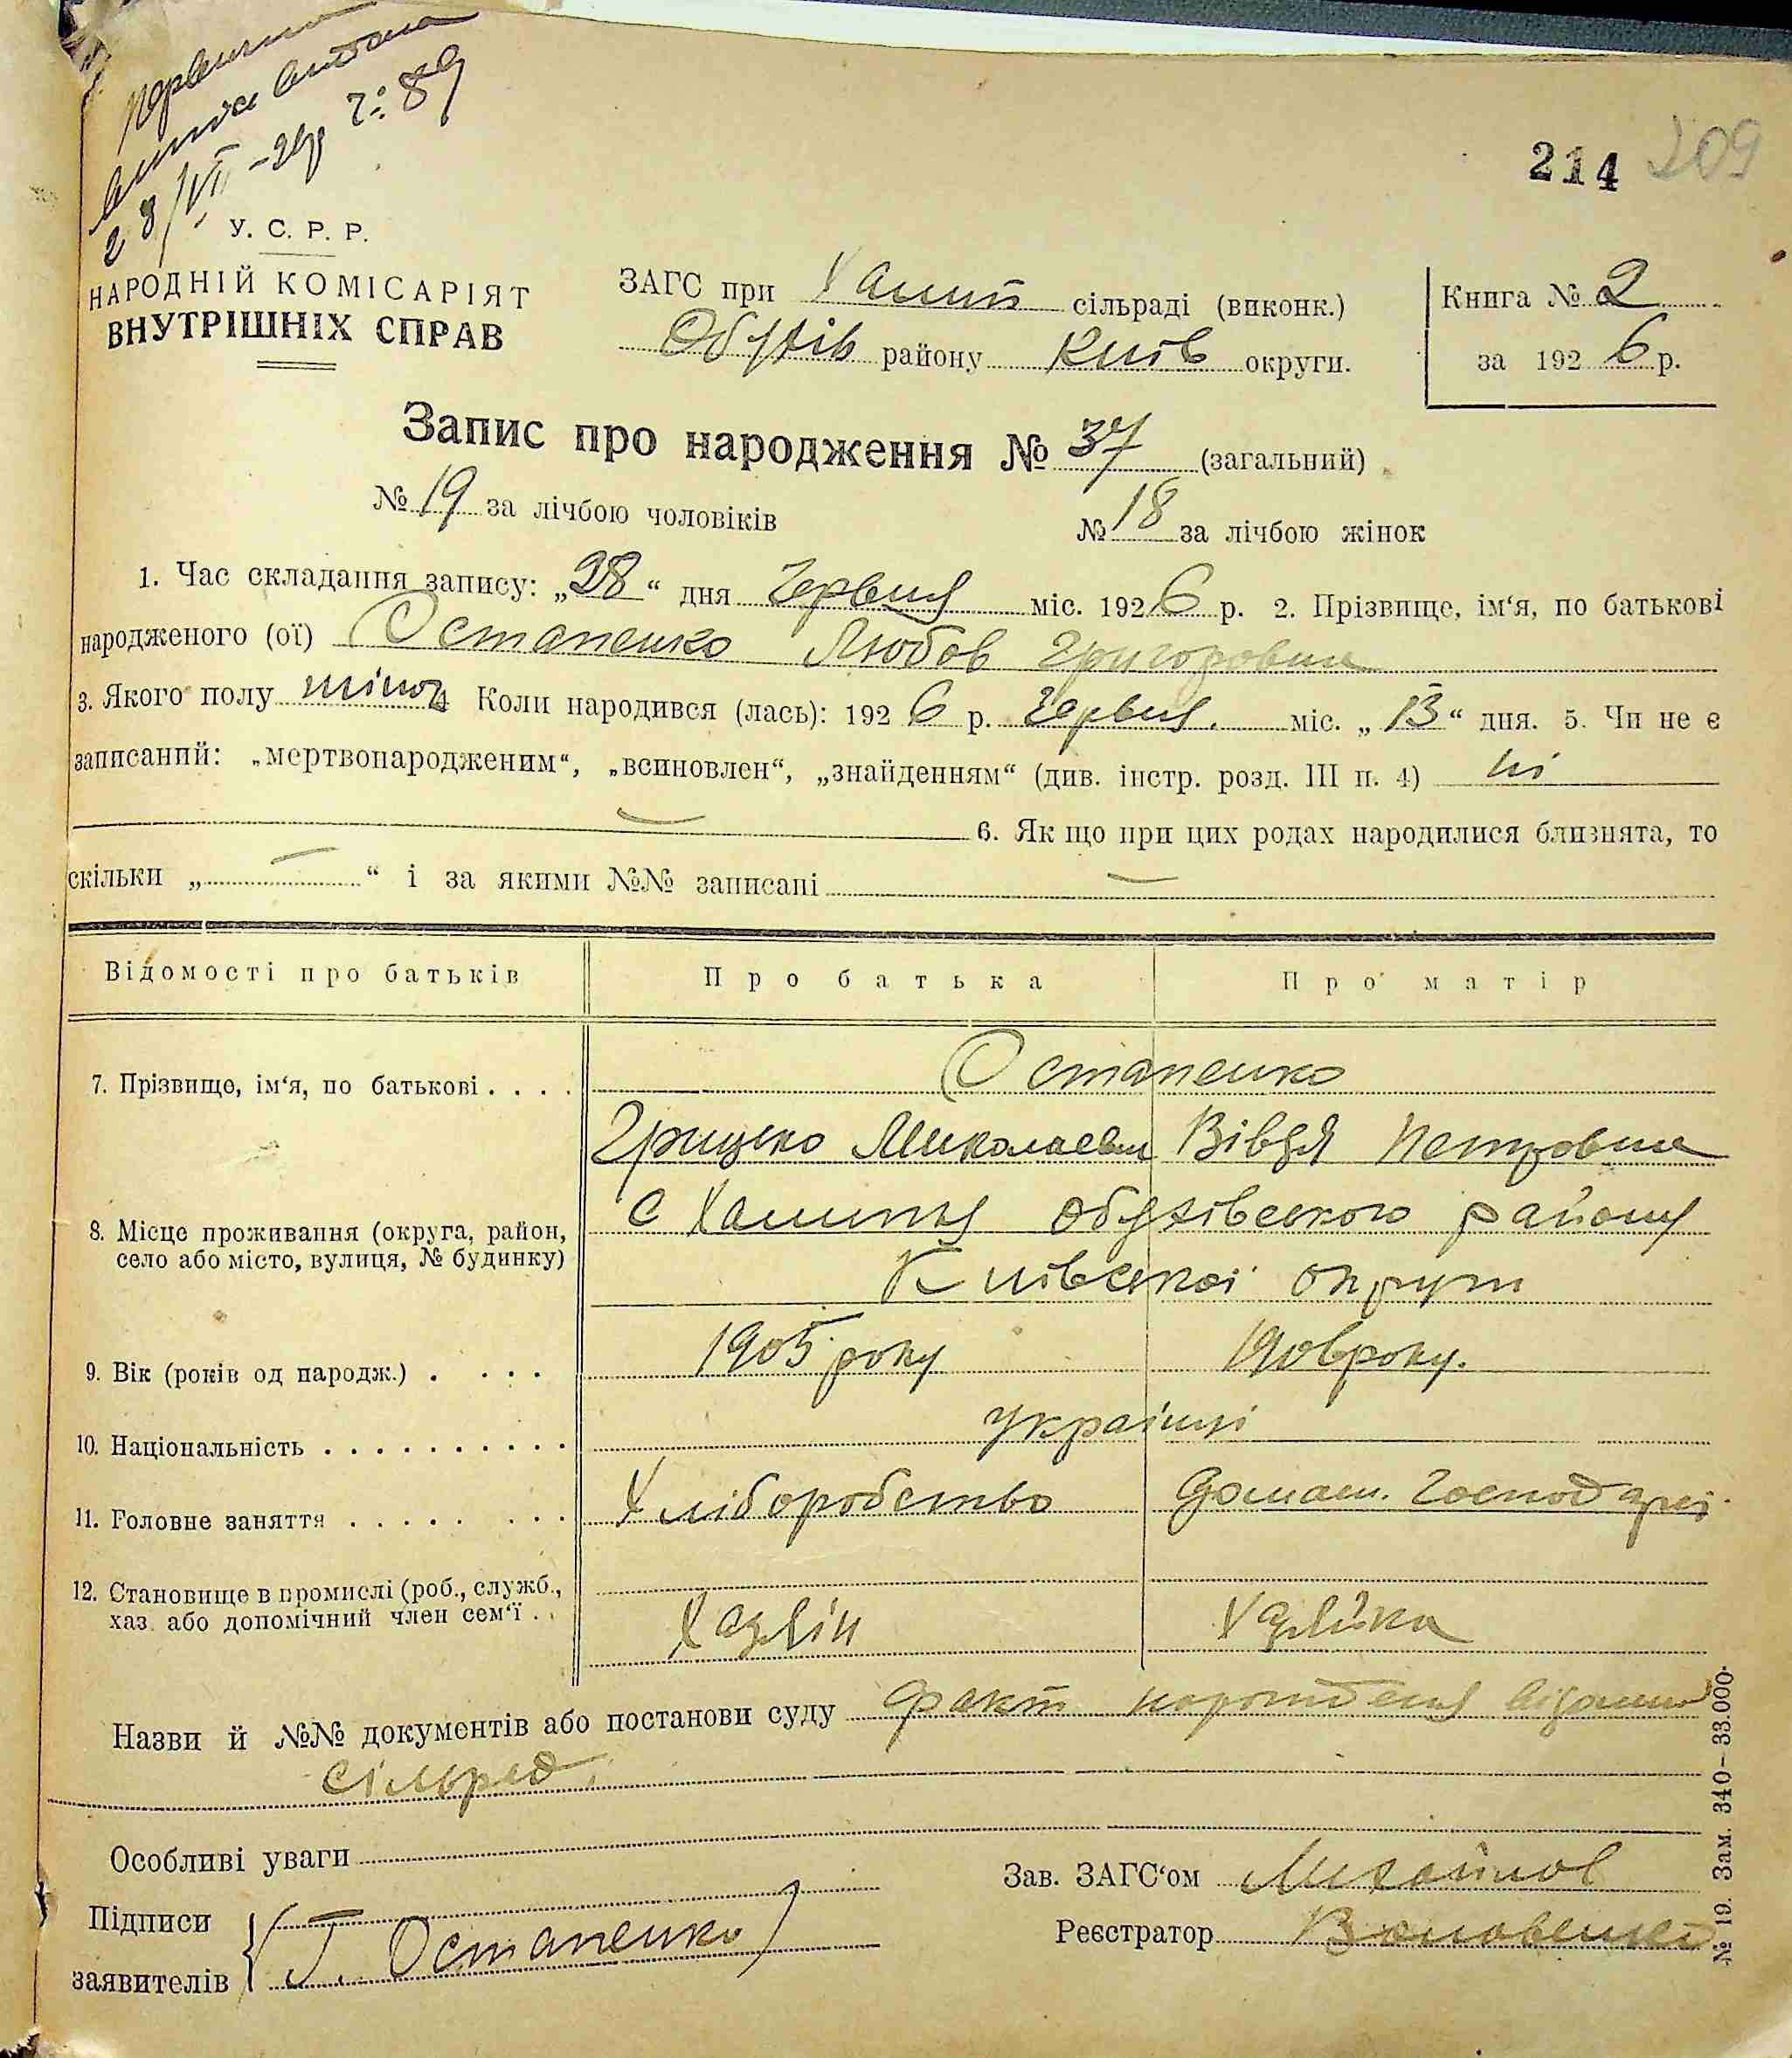 214 209
У. С. Р. Р.
НАРОДНІЙ КОМІСАРІЯТ
ВНУТРІШНІХ СПРАВ
ЗАГС при Халип сільраді (виконк.)
Обухів району Київ округи.
Книга № 2
за 1926 р.
Запис про народження № 37 (загальний)
№ 19 за лічбою чоловіків № 18 за лічбою жінок
1. Час складання запису: „28“ дня Червня міс. 1926 р. 2. Прізвище, ім‘я, по батькові
народженого (ої) Остапенко Любов Григоровна
3. Якого полу жіноч Коли народився (лась): 1926 р. Червня. міс. „13“ дня. 5. Чи не є
записаний: „мертвонародженим“, „всиновлен“, „знайденням“ (див. інстр. розд. III п. 4) ні
6. Як що при цих родах народилися близнята, то
скільки „ — “ і за якими №№ записані —
Відомості про батьків Про батька Про матір
7. Прізвище, ім‘я, по батькові . . . . Остапенко
Грицько Миколаевич Вівдя Петровна
8. Місце проживання (округа, район,
село або місто, вулиця, № будинку)
с Халипья Обухівського району
Київської округи
9. Вік (років од народж.) . . . . 1905 року 1906 року.
10. Національність . . . . . . . . . . українці
11. Головне заняття . . . . . . . . Хліборобство домаш. господарі
12. Становище в промислі (роб., служб.,
хаз. або допомічний член сем‘ї . .
Хазяїн Хазяйка
Назви й №№ документів або постанови суду факт народження відомий
сільраді
Особливі уваги
Зав. ЗАГС‘ом Михайлов
Підписи
заявителів
Г. Остапенко
Реєстратор
№ 19. Зам. 340–33.000.